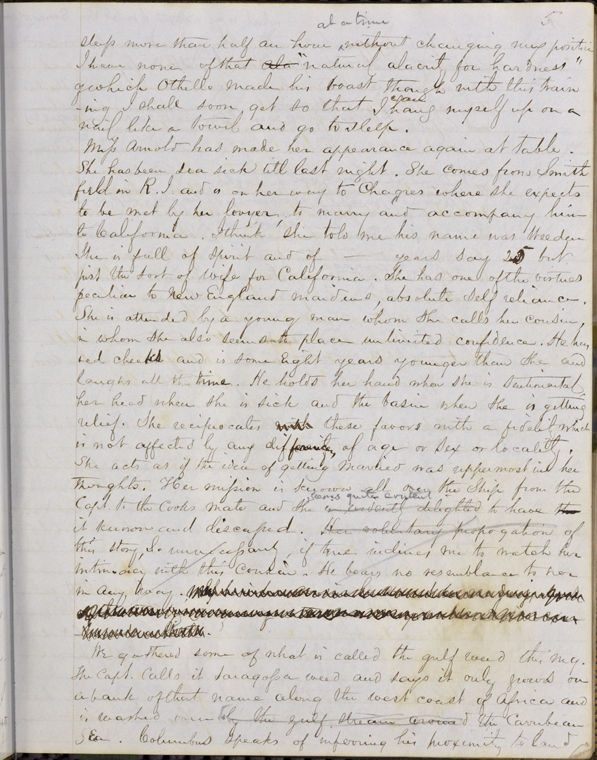 at a time
5
sleep more than half an hour without changing my position
I hear none of that "natural alacrity for hardness"
of which Othello made his boast though with this train
ing I shall soon get so that I can hang myself up on a
nail like a towel and go to sleep.
Miss Arnold has made her appearance again at table.
She has been sea sick till last night. She comes from Smith
field in R. I and is on her way to Chagres where she expects
to be met by her lover, to marry and accompany him
to California. I think she told me his name was Weeden
She is full of spirit and of — years say 25 but
just the sort of wife for California. She has one of the virtues
peculiar to New England maidens, absolute self reliance.
She is attended by a young man whom she calls her cousin,
in whom she also seems to place unlimited confidence. He has
red cheeks and is some Eight years younger than she and
laughs all the time. He holds her hand when she is sentimental,
her head when she is sick and the basin when she is getting
relief. She reciprocates these favors with a which
is not affected by any of age or sex or locality.
She acts as if the idea of getting married was uppermost in her
thoughts. Her mission is known all over the ship from the
Capt. to the Cooks mate and she is evidently delighted to have
seems quite content
it known and discussed. Her voluntary propagation of
this story so unnecessary if true inclines me to watch her
intimacy with this cousin. He bears no resemblance to her
in any way.
We gathered some of what is called the gulf weed this mg.
The Capt. calls it Saragossa weed and says it only grows on
a bank of that name along the west coast of Africa and
is washed by the gulf stream around the Carribean
Sea. Columbus speaks of inferring his proximity to land